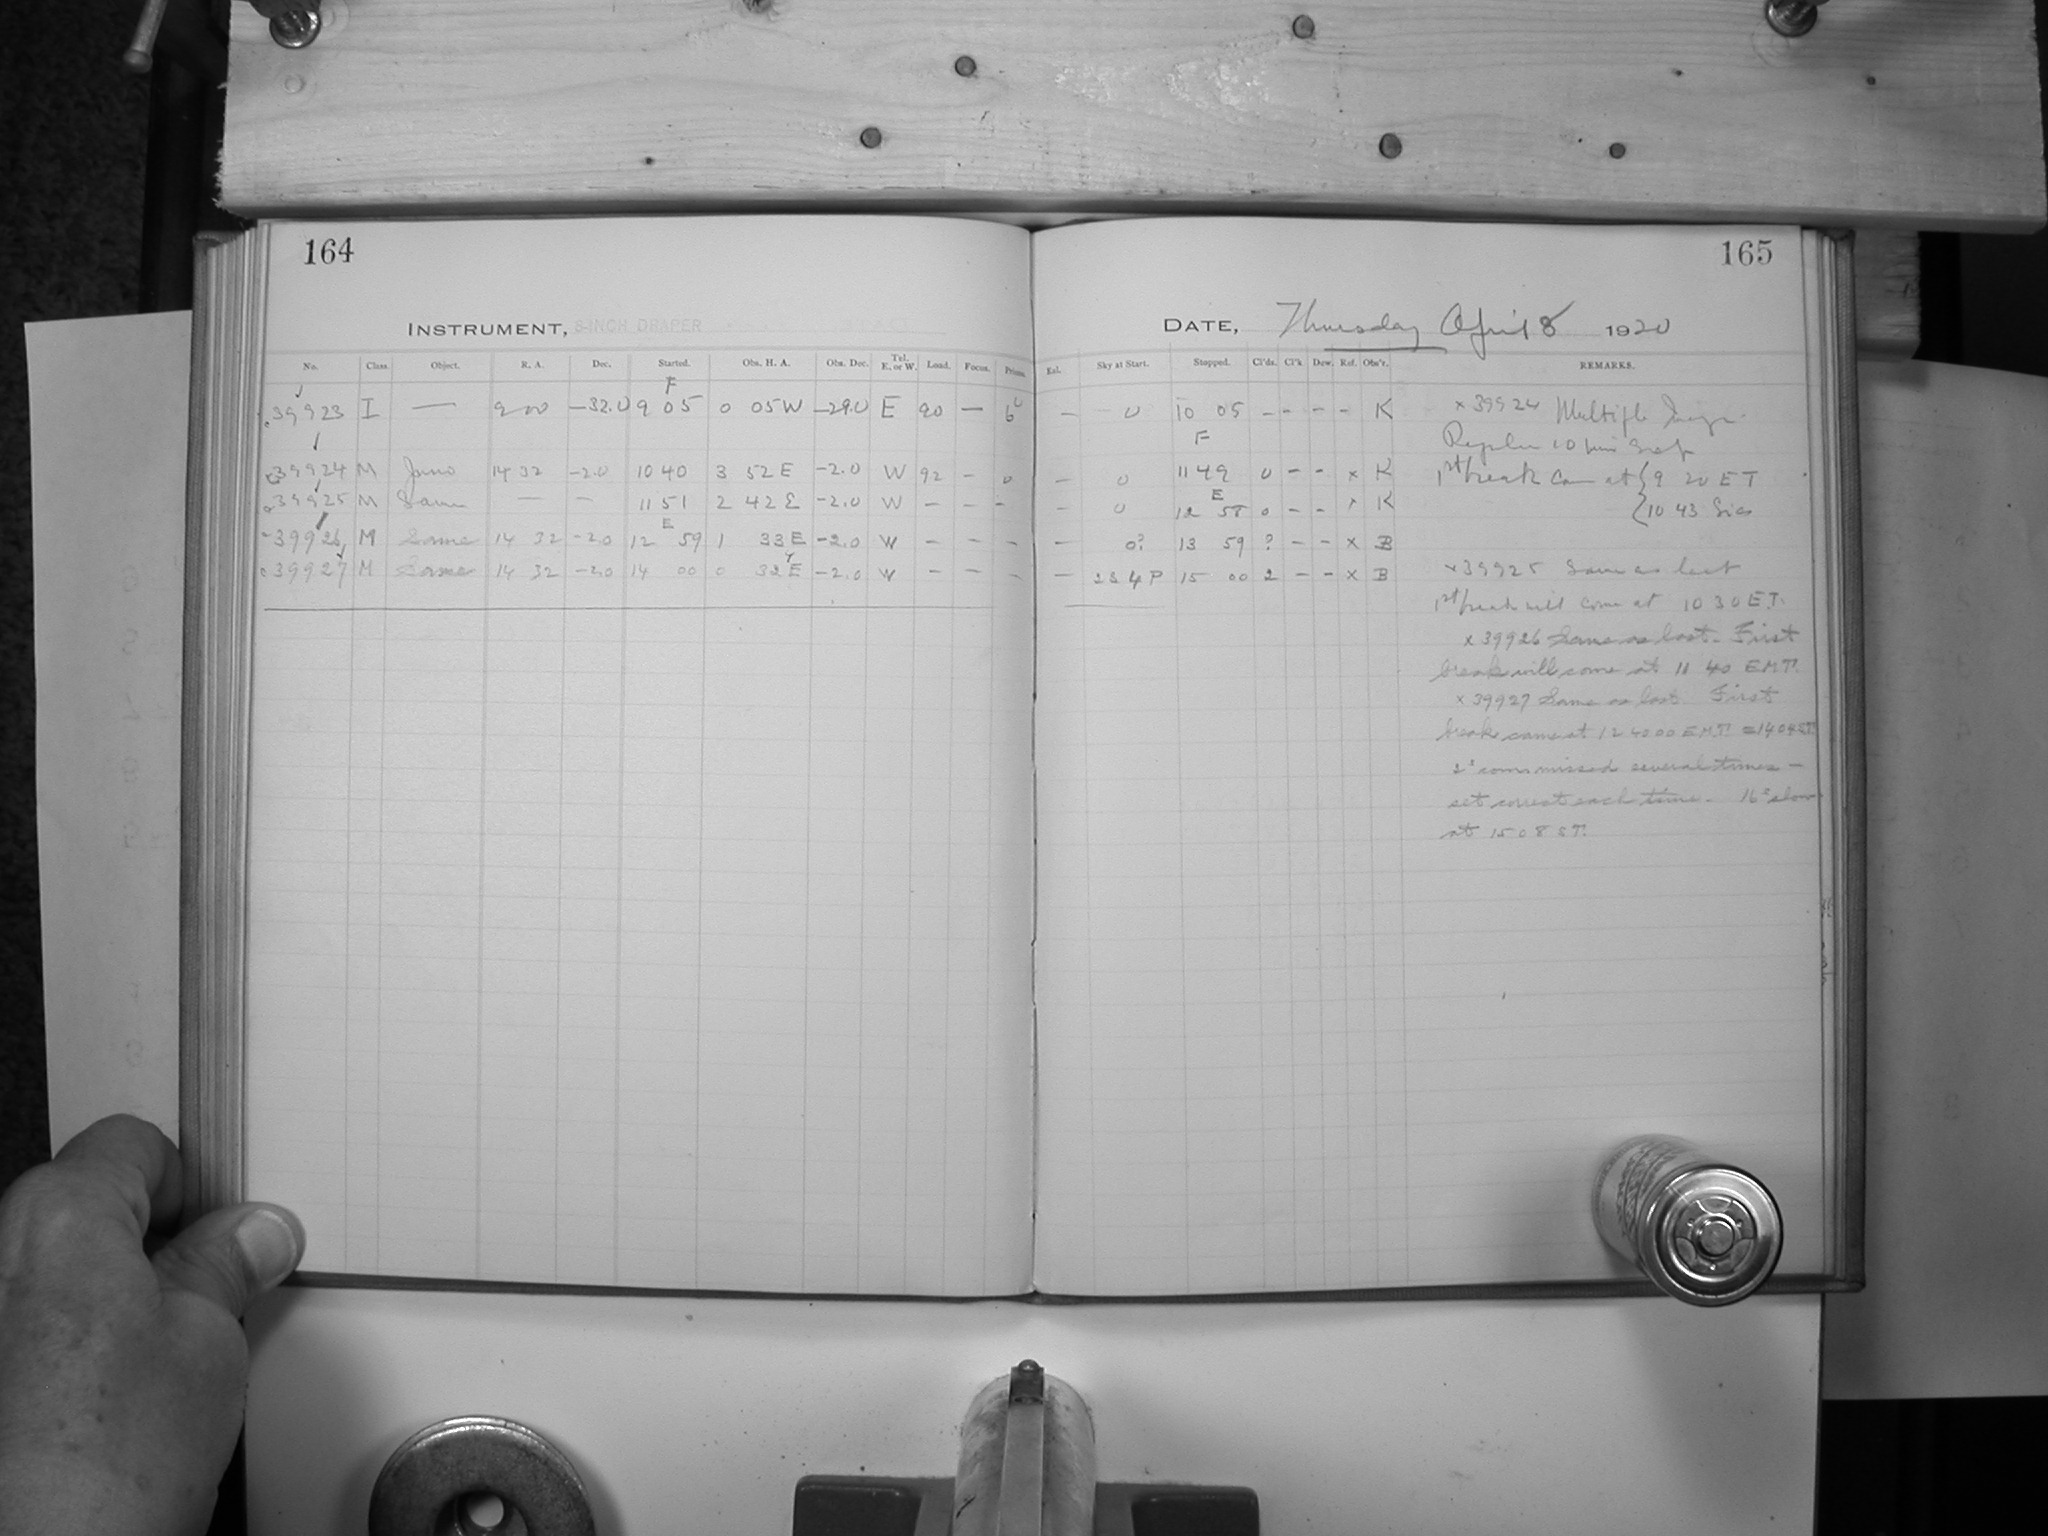 164
165
INSTRUMENT, 8-INCH DRAPER
DATE, Thursday April 8 1920
No. Class. Object. R. A. Dec. Started. Obs. H. A. Obs. Dec. Tel. E. or W. Load. Focus. Prisms. Sky at Start. Stopped. Cl'ds. Cl'k Dew. Ref. Obs'r. REMARKS.
F
39923 I — 9 00 −32.0 9 05 0 05 W −29.0 E 90 — — 0 10 05 – – – – K
F
39924 M Juno 14 32 −2.0 10 40 3 52 E −2.0 W 92 – 0 – 0 11 49 0 – – x K
E
39925 M Same — — 11 51 2 42 E −2.0 W – – – – 0 12 58 0 – – x K
E
39926 M Same 14 32 −2.0 12 59 1 33 E −2.0 W – – – – 0? 13 59 ? – – x B
39927 M Same 14 32 −2.0 14 00 0 32 E −2.0 W – – – – 234P 15 00 2 – – x B
x 39924 Multiple
Regular 10 min
1st break came at { 9 20 ET
{ 10 43 Sid
x 39925 Same as last
1st break will come at 10 30 E.T.
x 39926 Same as last. First
break will come at 11 40 EMT.
x 39927 Same as last First
break came at 12 40 00 EMT. = 1404 ST.
missed several times —
set correct each time. 16s slow
at 15 08 ST.